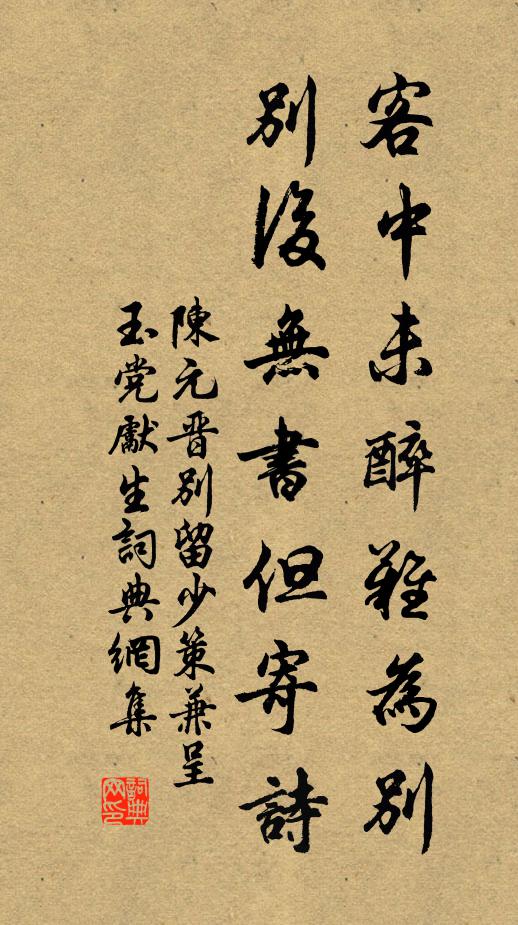 客中未醉難為別
別後無書但寄詩
陳元晉別留少策兼呈
玉堂獻生詞典網集
詞典
网印